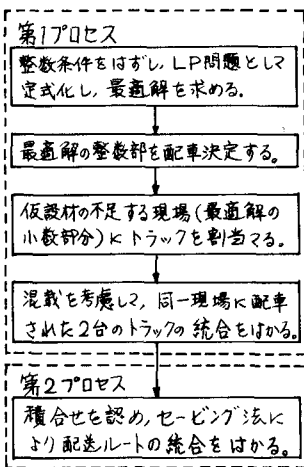 第1プロセス
整数条件をはずし、LP問題として
定式化し、最適解を求める。
最適解の整数部を配車決定する。
仮設材の不足する現場(最適解の
小数部分)にトラックを割当てる。
混載を考慮して、同一現場に配車
された2台のトラックの統合をはかる。
第2プロセス
積合せを認め、セービング法に
より配送ルートの統合をはかる。